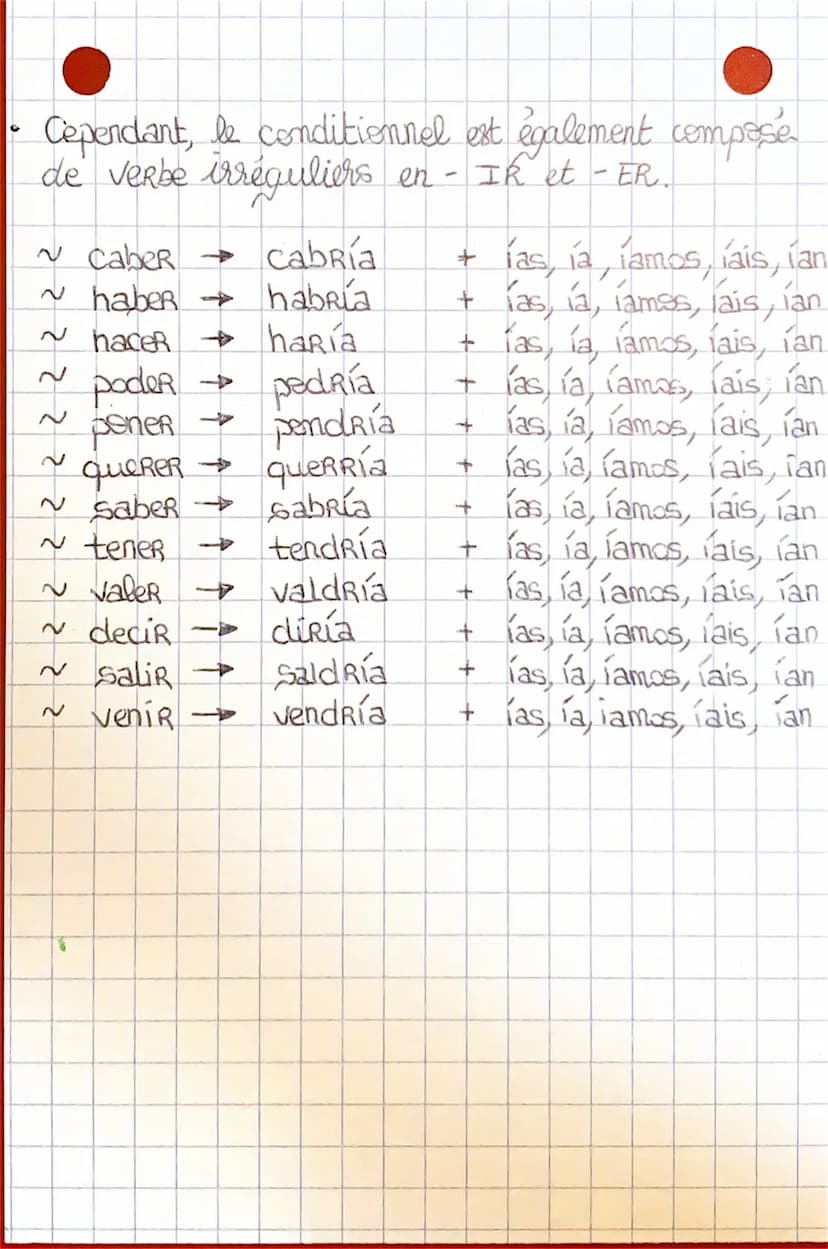 • Cependant, le conditionnel est également composé
de verbe irréguliers en - IR et - ER.
~ caber → cabría + ías, ía, íamos, íais, ían
~ haber → habría + ías, ía, íamos, íais, ían
~ hacer → haría + ías, ía, íamos, íais, ían
~ poder → podría + ías, ía, íamos, íais, ían
~ poner → pondría + ías, ía, íamos, íais, ían
~ querer → querría + ías, ía, íamos, íais, ían
~ saber → sabría + ías, ía, íamos, íais, ían
~ tener → tendría + ías, ía, íamos, íais, ían
~ valer → valdría + ías, ía, íamos, íais, ían
~ decir → diría + ías, ía, íamos, íais, ían
~ salir → saldría + ías, ía, íamos, íais, ían
~ venir → vendría + ías, ía, iamos, íais, ían